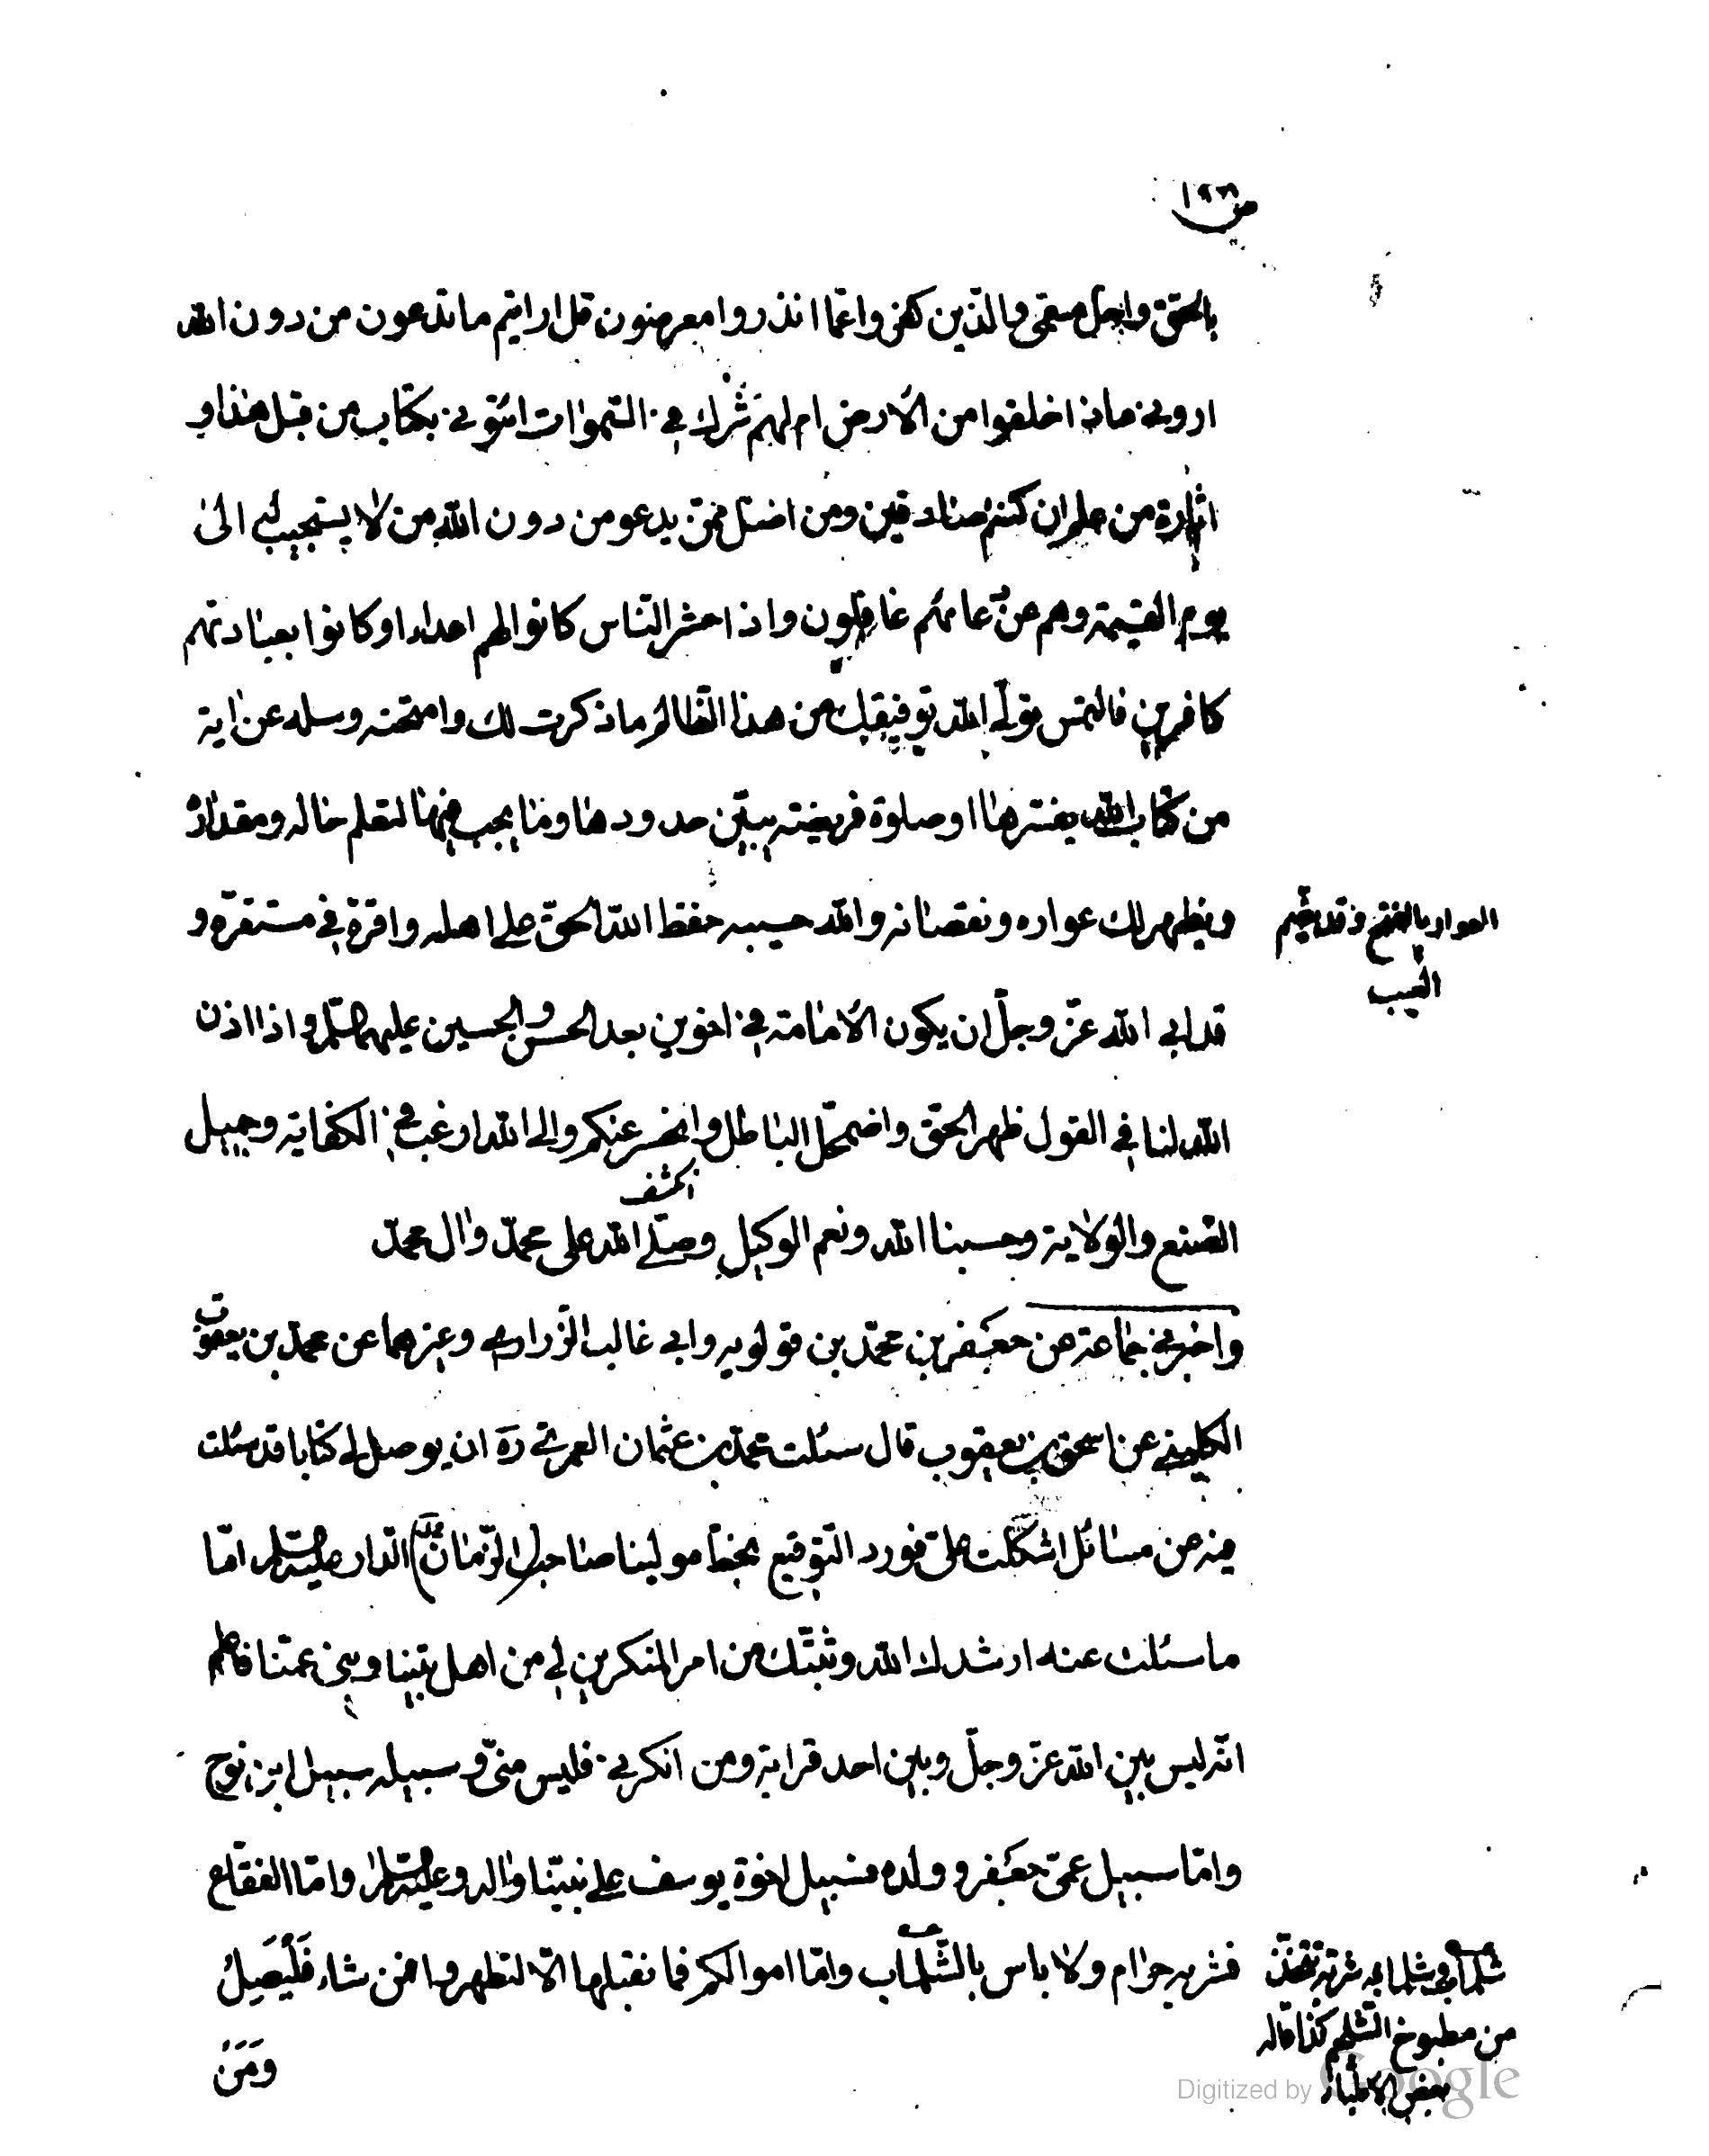 ص ١٩٣
بالحق واجل مسمى والذين كفروا عما انذروا معرضون قل ارايتم ما تدعون من دون الله
اروني ماذا خلقوا من الأرض ام لهم شرك في السموات ائتوني بكتاب من قبل هذا او
اثارة من علم ان كنتم صادقين ومن اضل ممن يدعو من دون الله من لا يستجيب له الى
يوم القيمة وهم عن دعائهم غافلون واذا حشر الناس كانوا لهم اعداء وكانوا بعبادتهم
كافرين فالتمس تولى الله توفيقك من هذا الظالم ما ذكرت لك وامتحنه وسله عن اية
من كتاب الله يفسرها او صلوة فريضة يبين حدودها وما يجب فيها لتعلم حاله ومقداره
ويظهر لك عواره ونقصانه والله حسيبه حفظ الله الحق على اهله واقره في مستقره و
العوار بالفتح وقد يضم
العيب
قد ابى الله عز وجل ان يكون الأمامة في اخوين بعد الحسن والحسين عليهما السلم واذا اذن
الله لنا في القول ظهر الحق واضمحل الباطل وانحسر عنكم والى الله ارغب في الكفاية وجميل
انكشف
الصنع والولاية وحسبنا الله ونعم الوكيل وصلى الله على محمد وال محمد
واخبرني جماعة عن جعفر بن محمد بن قولويه وابي غالب الزراري وغيرهما عن محمد بن يعقوب
الكليني عن اسحق بن يعقوب قال سئلت محمد بن عثمان العمري ره ان يوصل لي كتابا قد سئلت
فيه عن مسائل اشكلت على فورد التوقيع بخط مولينا صاحب (الزمان) الدار عليه السلم اما
ما سئلت عنه ارشدك الله وثبتك من امر المنكرين لي من اهل بيتنا وبني عمنا فاعلم
انه ليس بين الله عز وجل وبين احد قرابة ومن انكرني فليس مني وسبيله سبيل ابن نوح
واما سبيل عمي جعفر وولده فسبيل اخوة يوسف على نبينا واله وعليه السلم واما الفقاع
فشربه حرام ولا باس بالشلماب واما اموالكم فما نقبلها الا لتطهروا فمن شاء فليصل
شربة تتخذ
من مطبوخ الشلم كذا قاله
بعض الأطباء
ومن
Digitized by Google